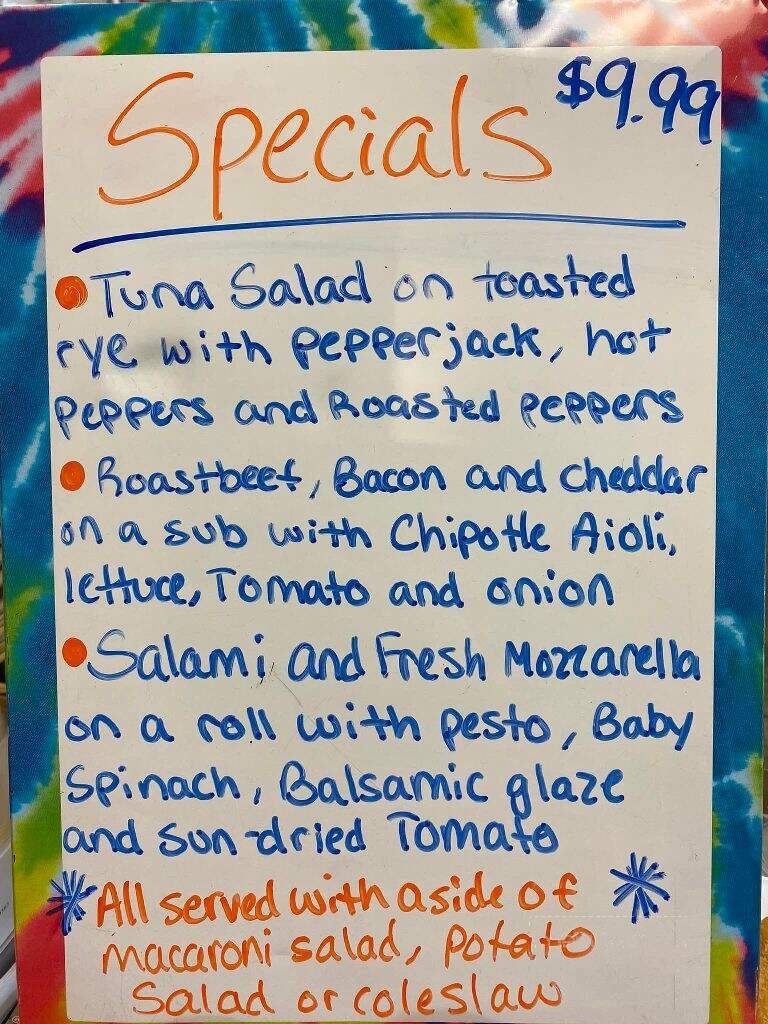 Specials $9.99
Tuna Salad on toasted
rye with pepperjack, hot
peppers and Roasted peppers
Roastbeef, Bacon and cheddar
on a sub with Chipotle Aioli,
lettuce, Tomato and onion
Salami and Fresh Mozzarella
on a roll with pesto, Baby
Spinach, Balsamic glaze
and sun-dried Tomato
All served with a side of
macaroni salad, potato
Salad or coleslaw